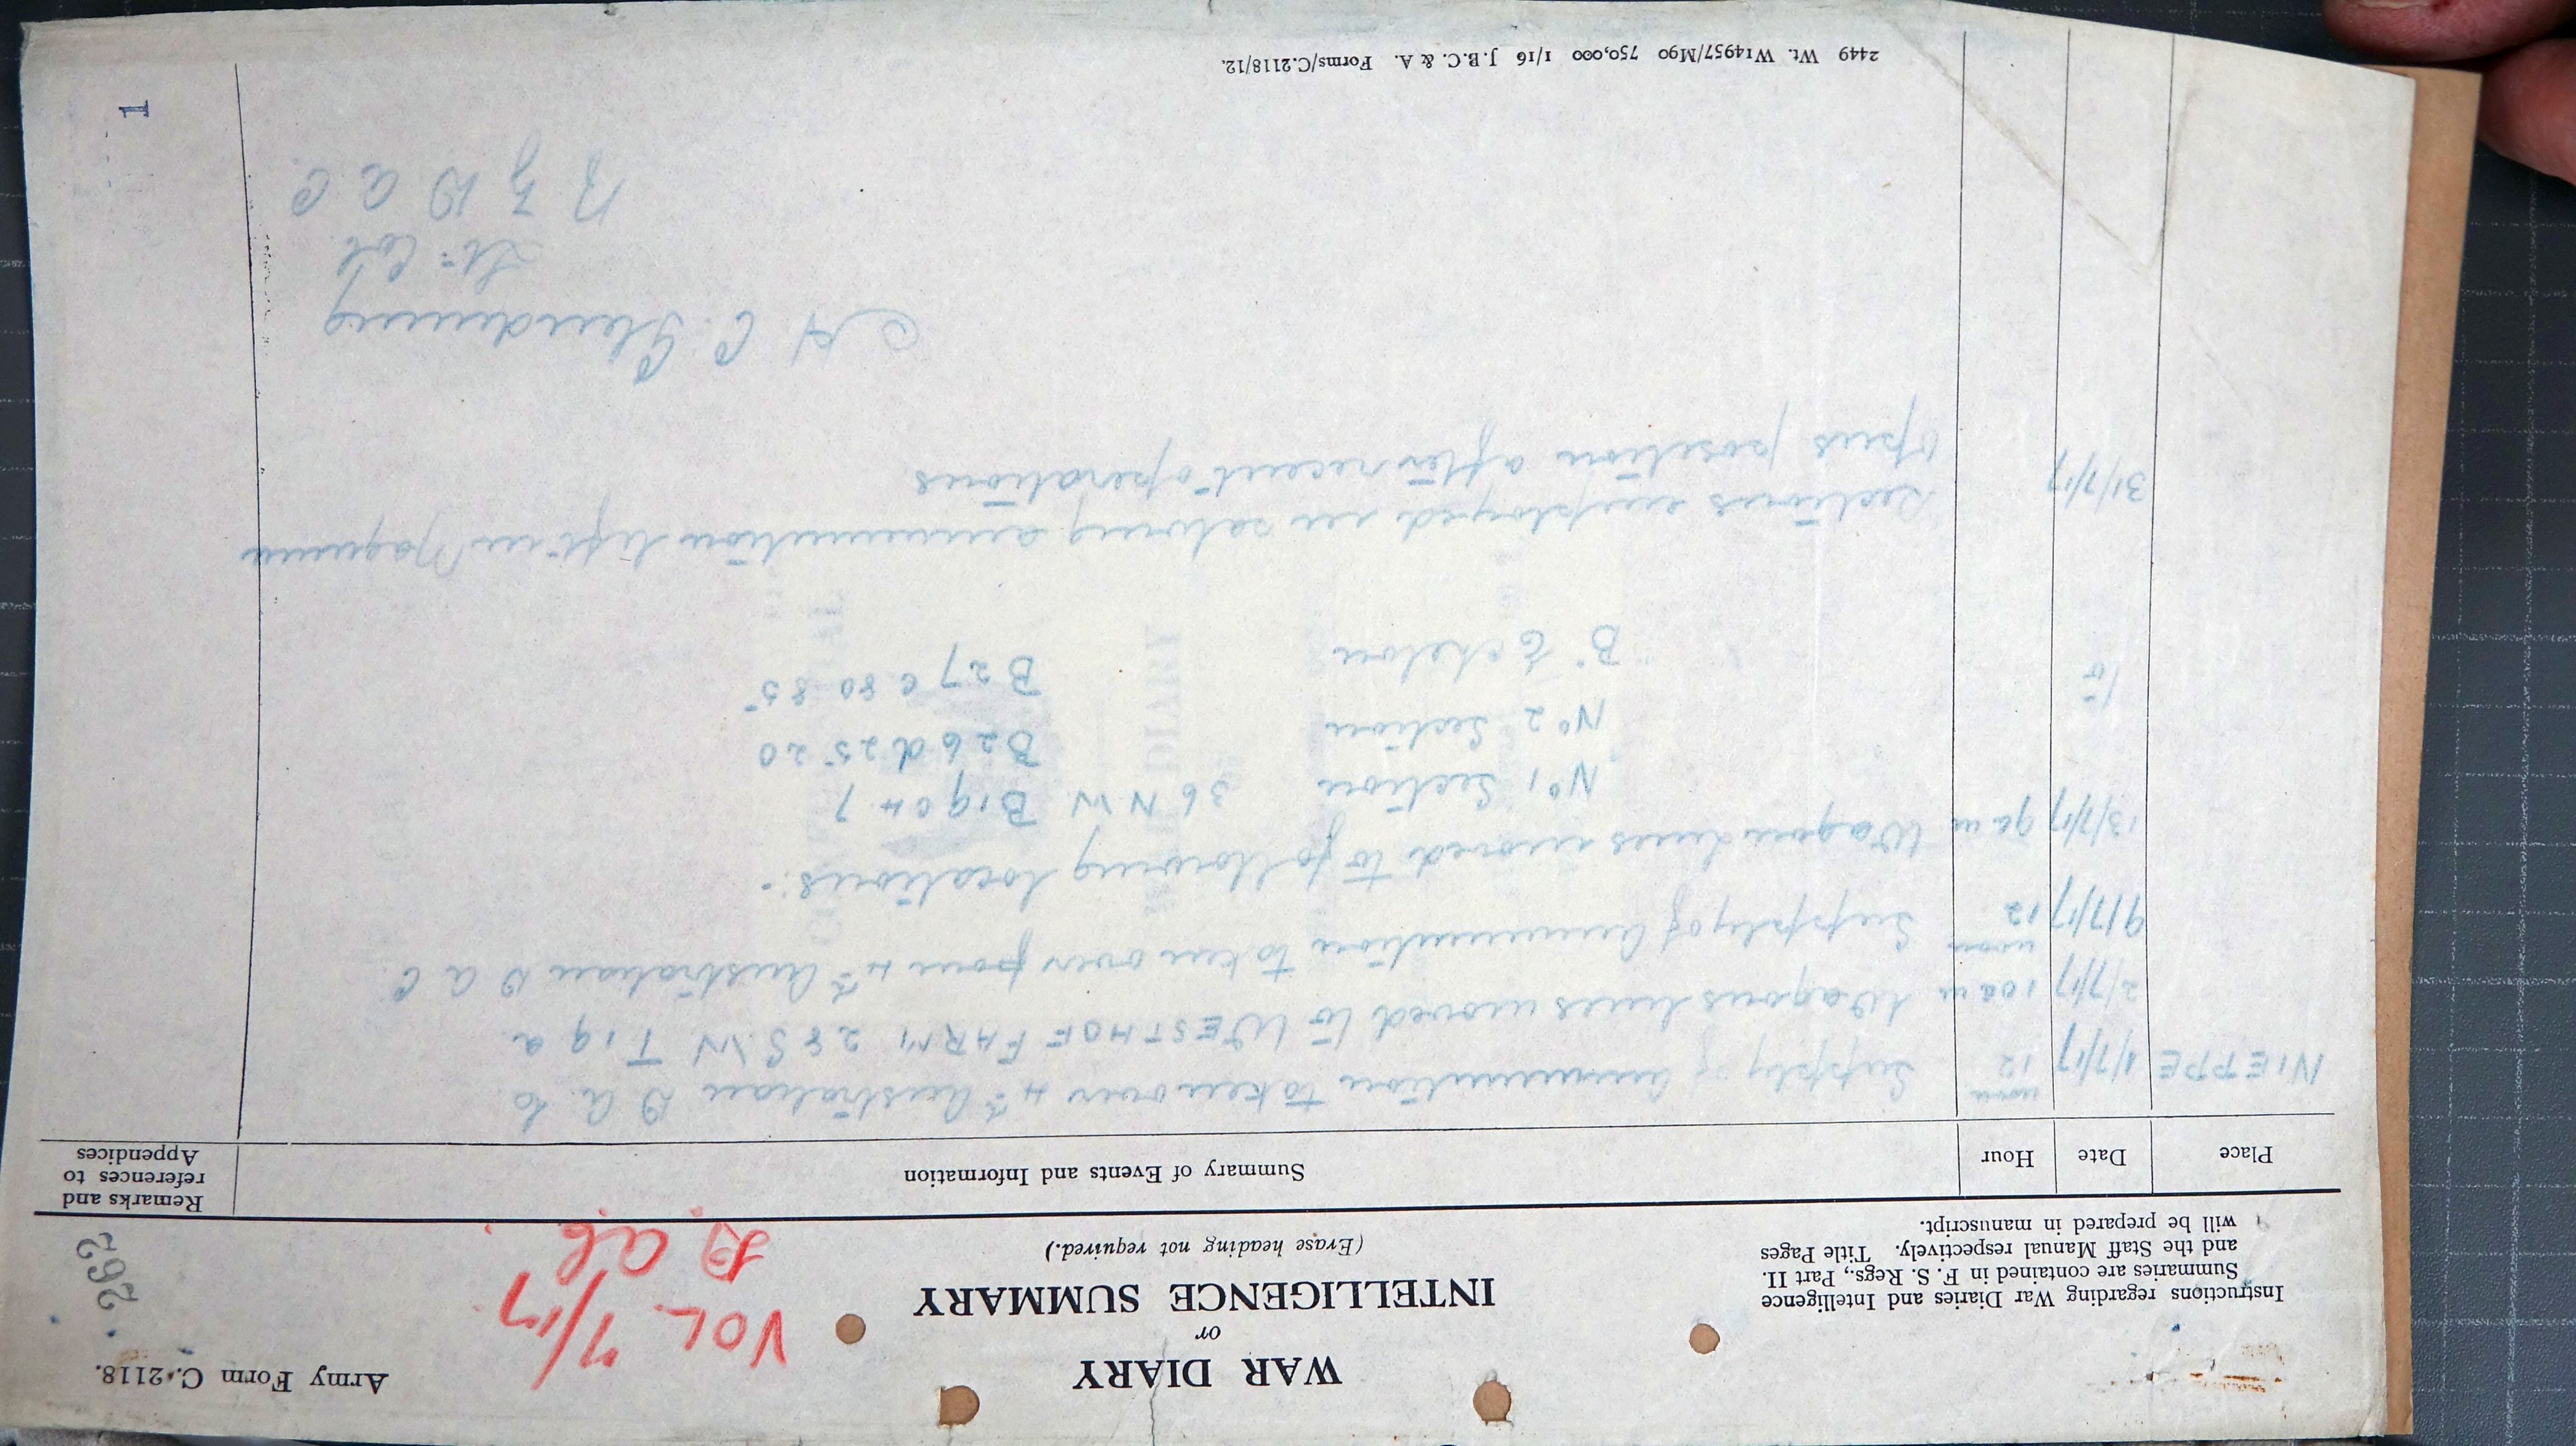 Army Form C. 2118.
WAR DIARY
or
INTELLIGENCE SUMMARY
(Erase heading not required.)
Instructions regarding War Diaries and Intelligence
Summaries are contained in F. S. Regs., Part II.
and the Staff Manual respectively. Title Pages
will be prepared in manuscript.
VOL 7/17
D.A.C.
262
Place
Date
Hour
Summary of Events and Information
Remarks and
references to
Appendices
NIEPPE 1/7/17 12 noon Supply of Ammunition taken over 4th Australian D A C
2/7/17 10 am Wagons lines moved to WESTHOF FARM 28 S.W T 19 a
9/7/17 12 noon Supply of Ammunition taken over from 4th Australian D A C
13/7/17 9 am Wagon Lines moved to following locations:-
No 1 Section 36 N.W B19 c 4 7
No 2 Section B26 d 25 20
"B" Echelon B27 c 80 85
15 to 31/7/17 Sections employed in salving ammunition left in Magnum
Opus position after recent operations
C. Glendining
Lt-Col
N Z D A C
1
2449 Wt. W14957/M90 750,000 1/16 J.B.C. & A. Forms/C.2118/12.